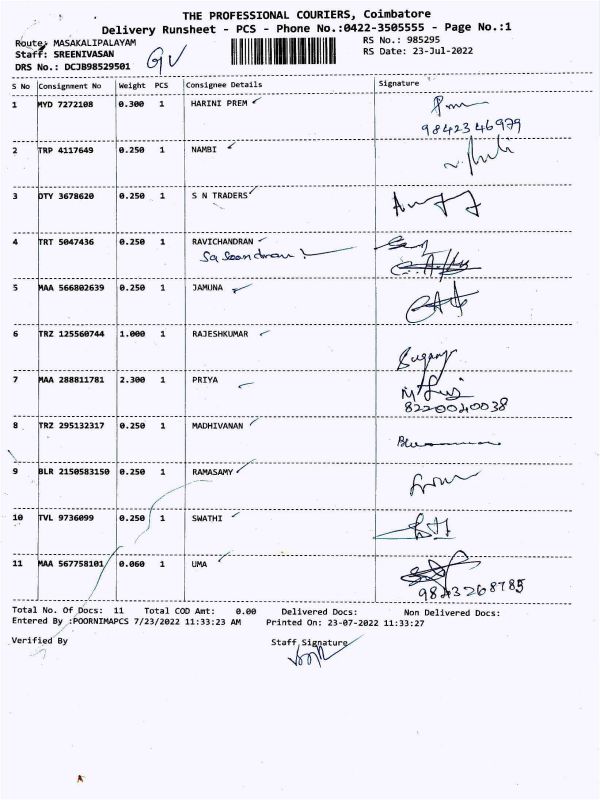 THE PROFESSIONAL COURIERS, Coimbatore
Delivery Runsheet - PCS - Phone No.:0422-3505555 - Page No.:1
Route: MASAKALIPALAYAM RS No.: 985295
Staff: SREENIVASAN RS Date: 23-Jul-2022
DRS No.: DCJB98529501 GV
S No Consignment No Weight PCS Consignee Details Signature
1 MYD 7272108 0.300 1 HARINI PREM
9842346979
2 TRP 4117649 0.250 1 NAMBI
3 DTY 3678620 0.250 1 S N TRADERS
4 TRT 5047436 0.250 1 RAVICHANDRAN
5 MAA 566802639 0.250 1 JAMUNA
6 TRZ 125560744 1.000 1 RAJESHKUMAR
7 MAA 288811781 2.300 1 PRIYA
8220040038
8 TRZ 295132317 0.250 1 MADHIVANAN
9 BLR 2150583150 0.250 1 RAMASAMY
10 TVL 9736099 0.250 1 SWATHI
11 MAA 567758101 0.060 1 UMA
9843268785
Total No. Of Docs: 11 Total COD Amt: 0.00 Delivered Docs: Non Delivered Docs:
Entered By :POORNIMAPCS 7/23/2022 11:33:23 AM Printed On: 23-07-2022 11:33:27
Verified By Staff Signature